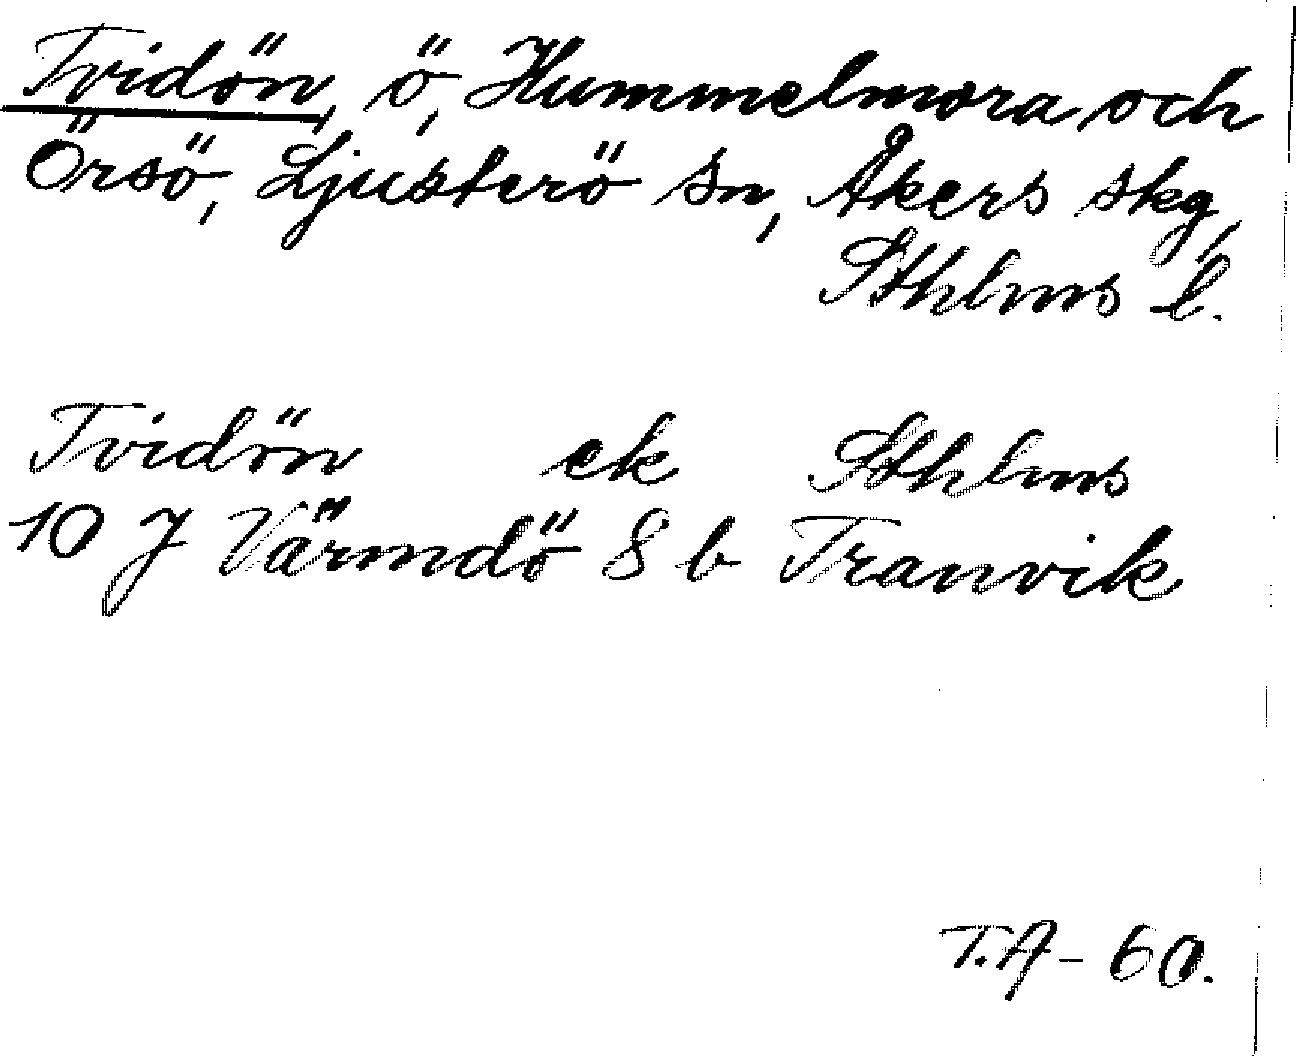 Tvidön, ö, Hummelmora och
Örsö, Ljusterö sn, Åkers skg,
Sthlms l.
Tvidön ek Sthlms
10 J Värmdö 8 b Tranvik
T.A - 60.